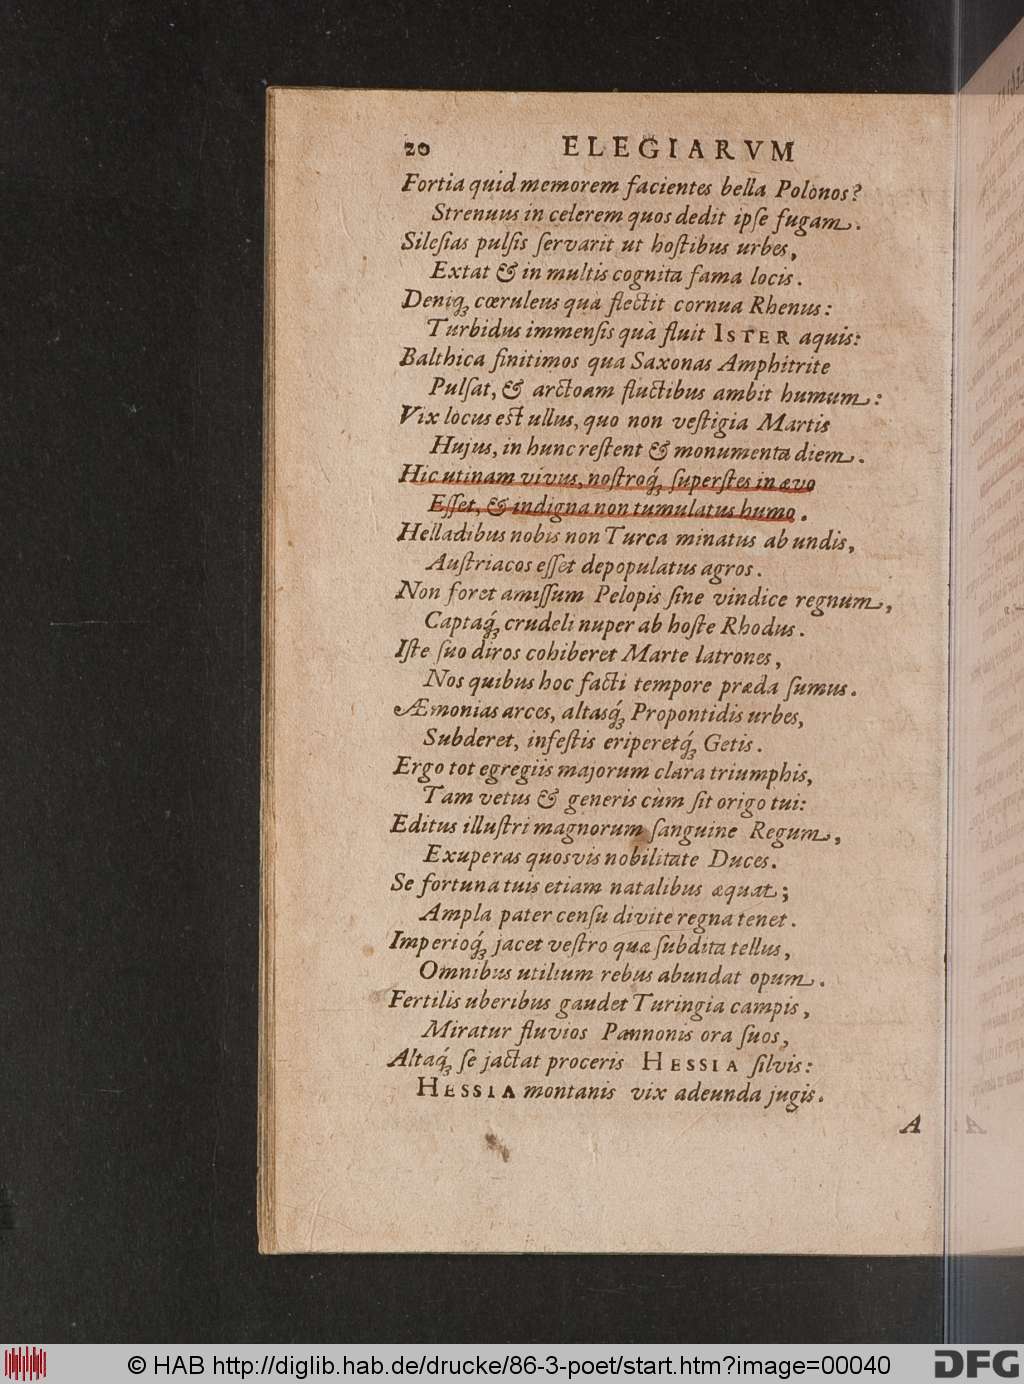 20 ELEGIARVM
Fortia quid memorem facientes bella Polonos?
Strenuus in celerem quos dedit ipſe fugam.
Sileſias pulſis ſervarit ut hoſtibus urbes,
Extat & in multis cognita fama locis.
Deniq́; cœruleus qua flectit cornua Rhenus:
Turbidus immenſis quà fluit ISTER aquis:
Balthica finitimos qua Saxonas Amphitrite
Pulſat, & arctoam fluctibus ambit humum:
Vix locus eſt ullus, quo non veſtigia Martis
Hujus, in hunc reſtent & monumenta diem.
Hic utinam vivus, noſtroq́; ſuperſtes in ævo
Eſſet, & indigna non tumulatus humo.
Helladibus nobis non Turca minatus ab undis,
Auſtriacos eſſet depopulatus agros.
Non foret amiſſum Pelopis ſine vindice regnum,
Captaq́; crudeli nuper ab hoſte Rhodus.
Iſte ſuo diros cohiberet Marte latrones,
Nos quibus hoc facti tempore præda ſumus.
Æmonias arces, altasq́; Propontidis urbes,
Subderet, infeſtis eriperetq́; Getis.
Ergo tot egregiis majorum clara triumphis,
Tam vetus & generis cùm ſit origo tui:
Editus illuſtri magnorum ſanguine Regum,
Exuperas quosvis nobilitate Duces.
Se fortuna tuis etiam natalibus æquat;
Ampla pater cenſu divite regna tenet.
Imperioq́; jacet veſtro quæ ſubdita tellus,
Omnibus utilium rebus abundat opum.
Fertilis uberibus gaudet Turingia campis,
Miratur fluvios Pannonis ora ſuos,
Altaq́; ſe jactat proceris HESSIA ſilvis:
HESSIA montanis vix adeunda jugis.
A
© HAB http://diglib.hab.de/drucke/86-3-poet/start.htm?image=00040
DFG